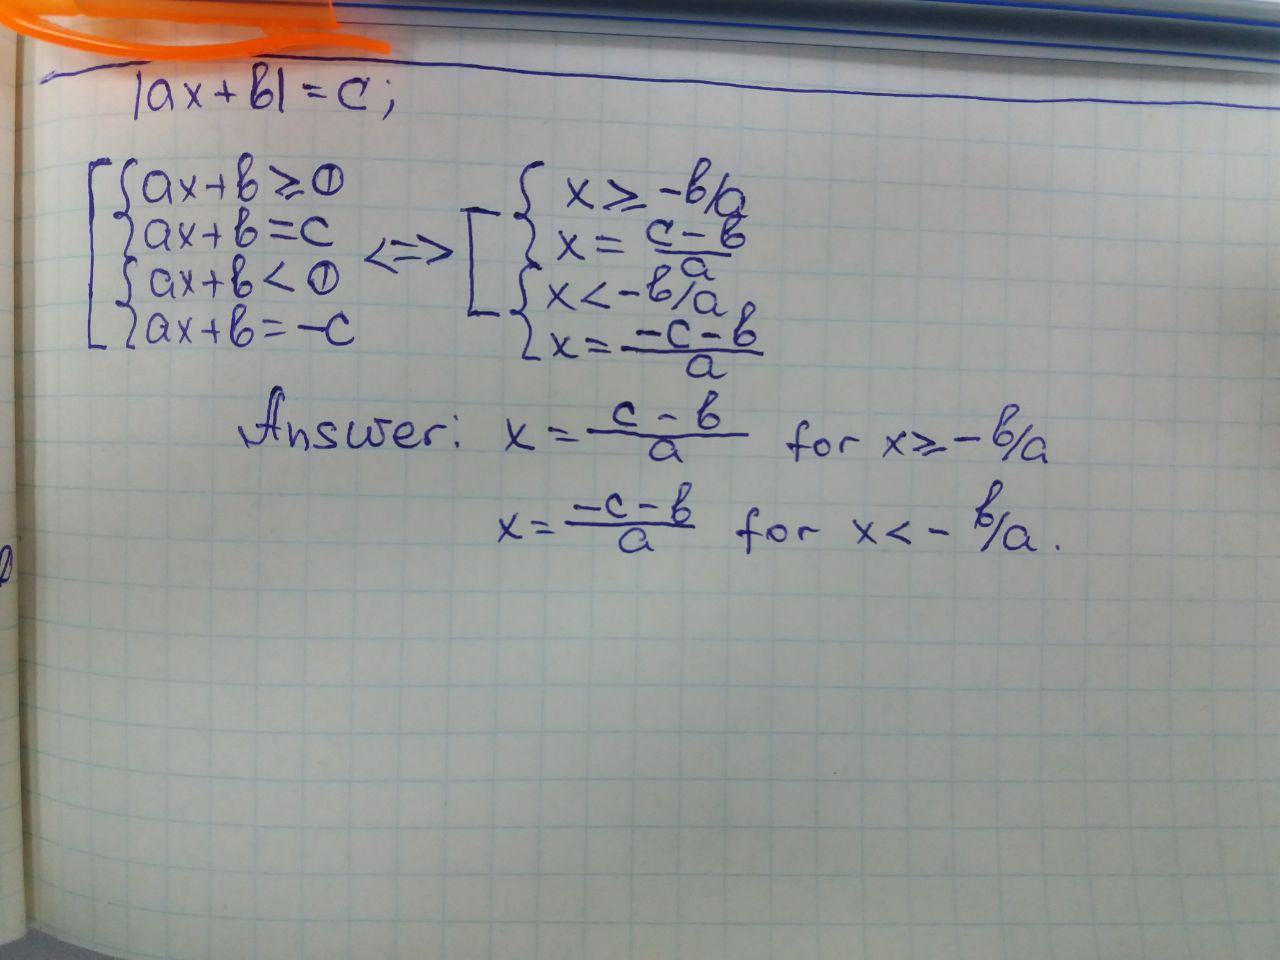 |ax+b| = c;
[ { ax+b ≥ 0
ax+b = c
{ ax+b < 0
ax+b = -c
<=>
[ { x ≥ -b/a
x = (c-b)/a
{ x < -b/a
x = (-c-b)/a
Answer: x = (c-b)/a for x ≥ -b/a
x = (-c-b)/a for x < -b/a.